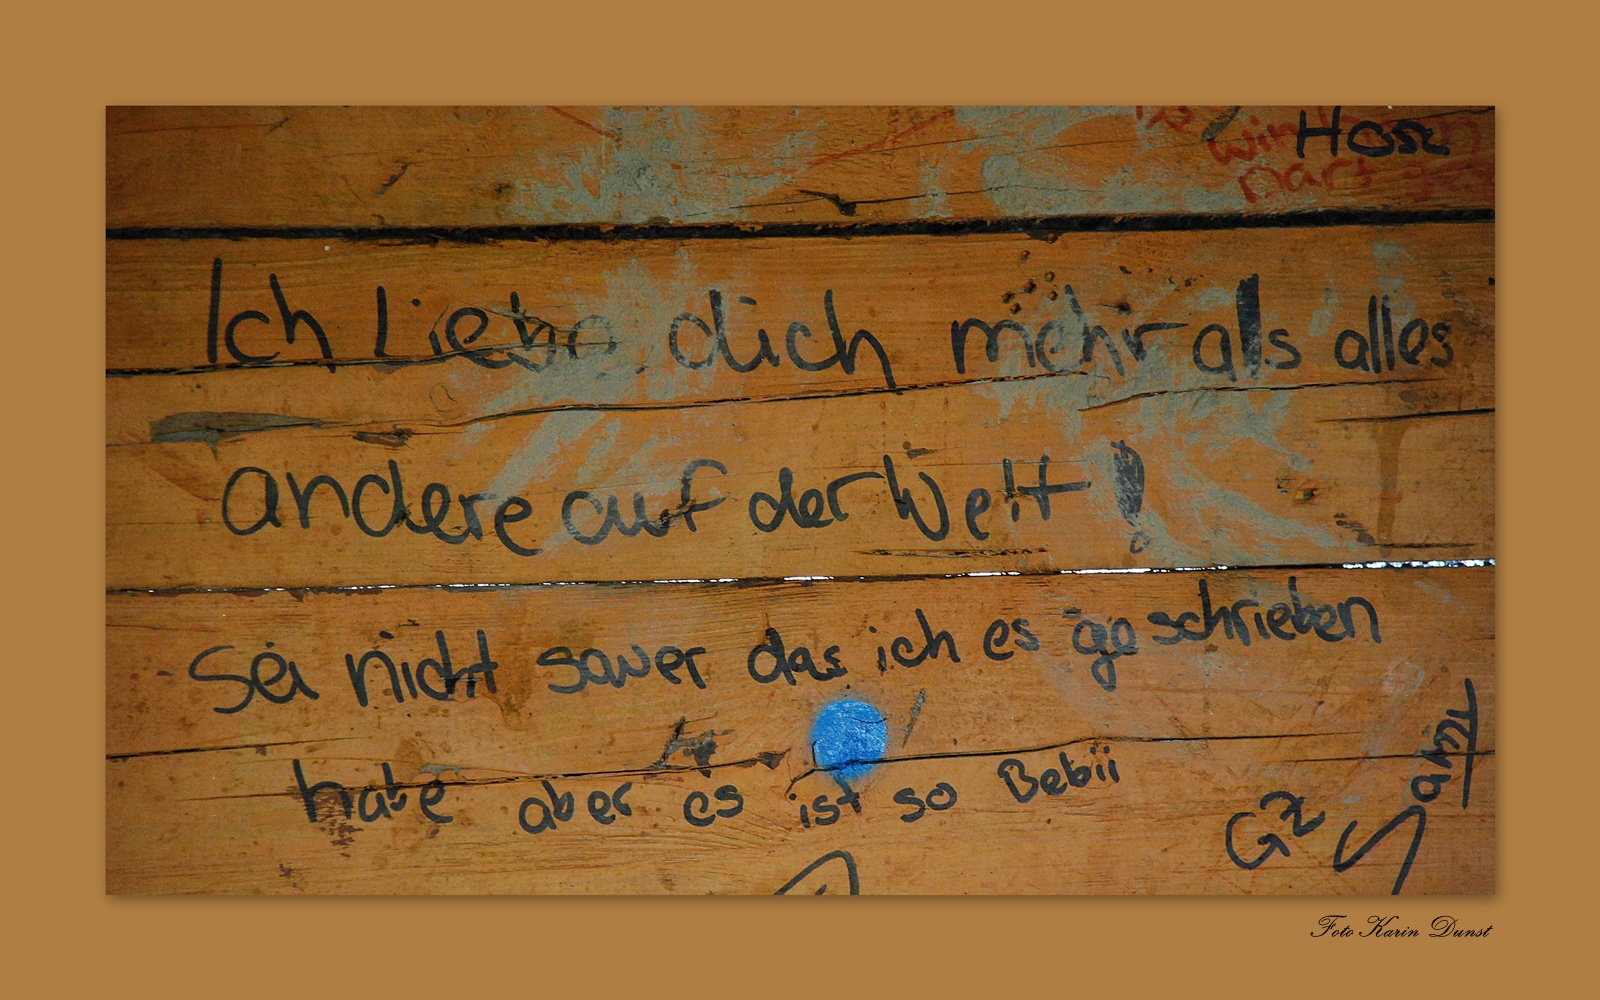 Hose
Ich Liebe dich mehr als alles
andere auf der Welt!
Sei nicht sauer das ich es geschrieben
habe aber es ist so Bebii
Foto Karin Dunst